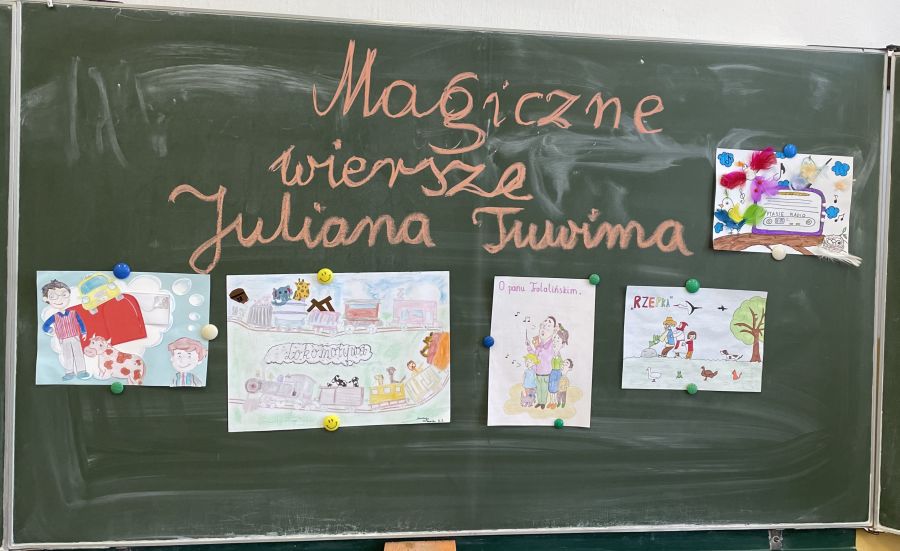 Magiczne
wiersze
Juliana Tuwima
PTASIE RADIO
lokomotywa
O panu Tralalińskim.
„RZEPKA”